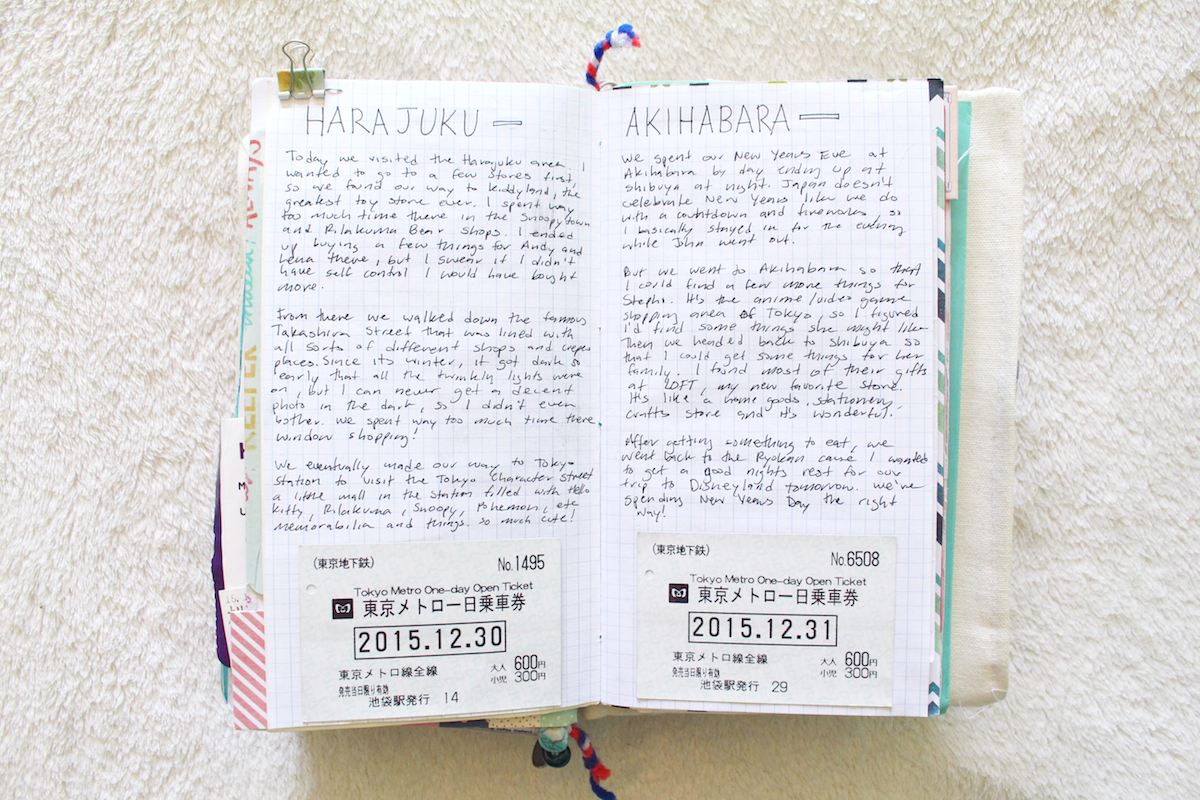 HARAJUKU —
Today we visited the Harajuku area. I
wanted to go to a few stores first,
so we found our way to Kiddyland, the
greatest toy store ever. I spent way
too much time there in the Snoopy town
and Rilakuma Bear shops. I ended
up buying a few things for Andy and
Lena there, but I swear if I didn't
have self control I would have bought
more.
From there we walked down the famous
Takashira Street that was lined with
all sorts of different shops and crepes
places. Since its winter, it got dark so
early that all the twinkly lights were
on, but I can never get a decent
photo in the dark, so I didn't even
bother. We spent way too much time there
window shopping!
We eventually made our way to Tokyo
Station to visit the Tokyo Character Street
a little mall in the station filled with Hello
Kitty, Rilakuma, Snoopy, Pokemon, etc
memorabilia and things. So much cute!
(東京地下鉄)
No.1495
Tokyo Metro One-day Open Ticket
東京メトロ一日乗車券
2015.12.30
東京メトロ線全線
大人 600円
小児 300円
発売当日限り有効
池袋駅発行 14
AKIHABARA —
We spent our New Years Eve at
Akihabara by day ending up at
Shibuya at night. Japan doesn't
celebrate New Years like we do
with a countdown and fireworks, so
I basically stayed in for the evening
while John went out.
But we went to Akihabara so that
I could find a few more things for
Steph. It's the anime/video game
shopping area of Tokyo, so I figured
I'd find some things she might like.
Then we headed back to Shibuya so
that I could get some things for her
family. I found most of their gifts
at LOFT, my new favorite store.
It's like a home goods, stationery,
crafts store and it's wonderful.
After getting something to eat, we
went back to the Ryokan cause I wanted
to get a good nights rest for our
trip to Disneyland tomorrow. We're
spending New Years Day the right
way!
(東京地下鉄)
No.6508
Tokyo Metro One-day Open Ticket
東京メトロ一日乗車券
2015.12.31
東京メトロ線全線
大人 600円
小児 300円
発売当日限り有効
池袋駅発行 29